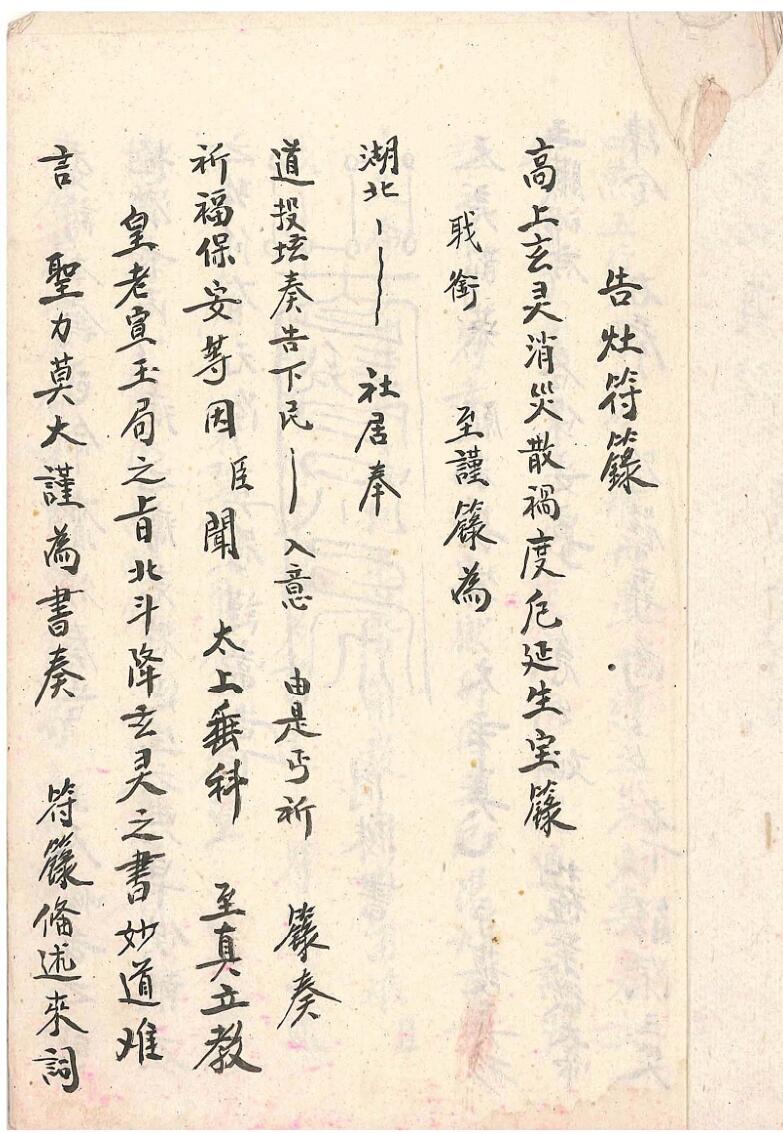 告灶符籙
高上玄灵消災散禍度厄延生宝籙
職銜 至謹籙為
湖北 社居奉
道投坛奏告下民 入意 由是丐祈 籙奏
祈福保安等因 臣聞 太上垂科 至真立教
皇老宣玉局之旨北斗降玄灵之書妙道难
言 聖力莫大謹為書奏 符籙俻述來詞